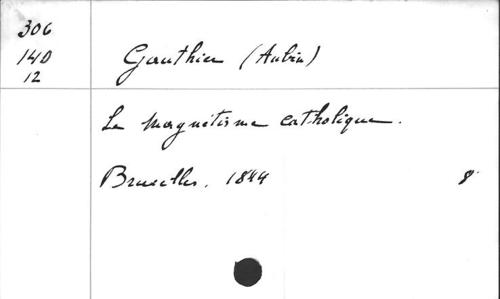 306
140
12
Gauthier (Aubin)
Le magnétisme catholique.
Bruxelles. 1844
8°